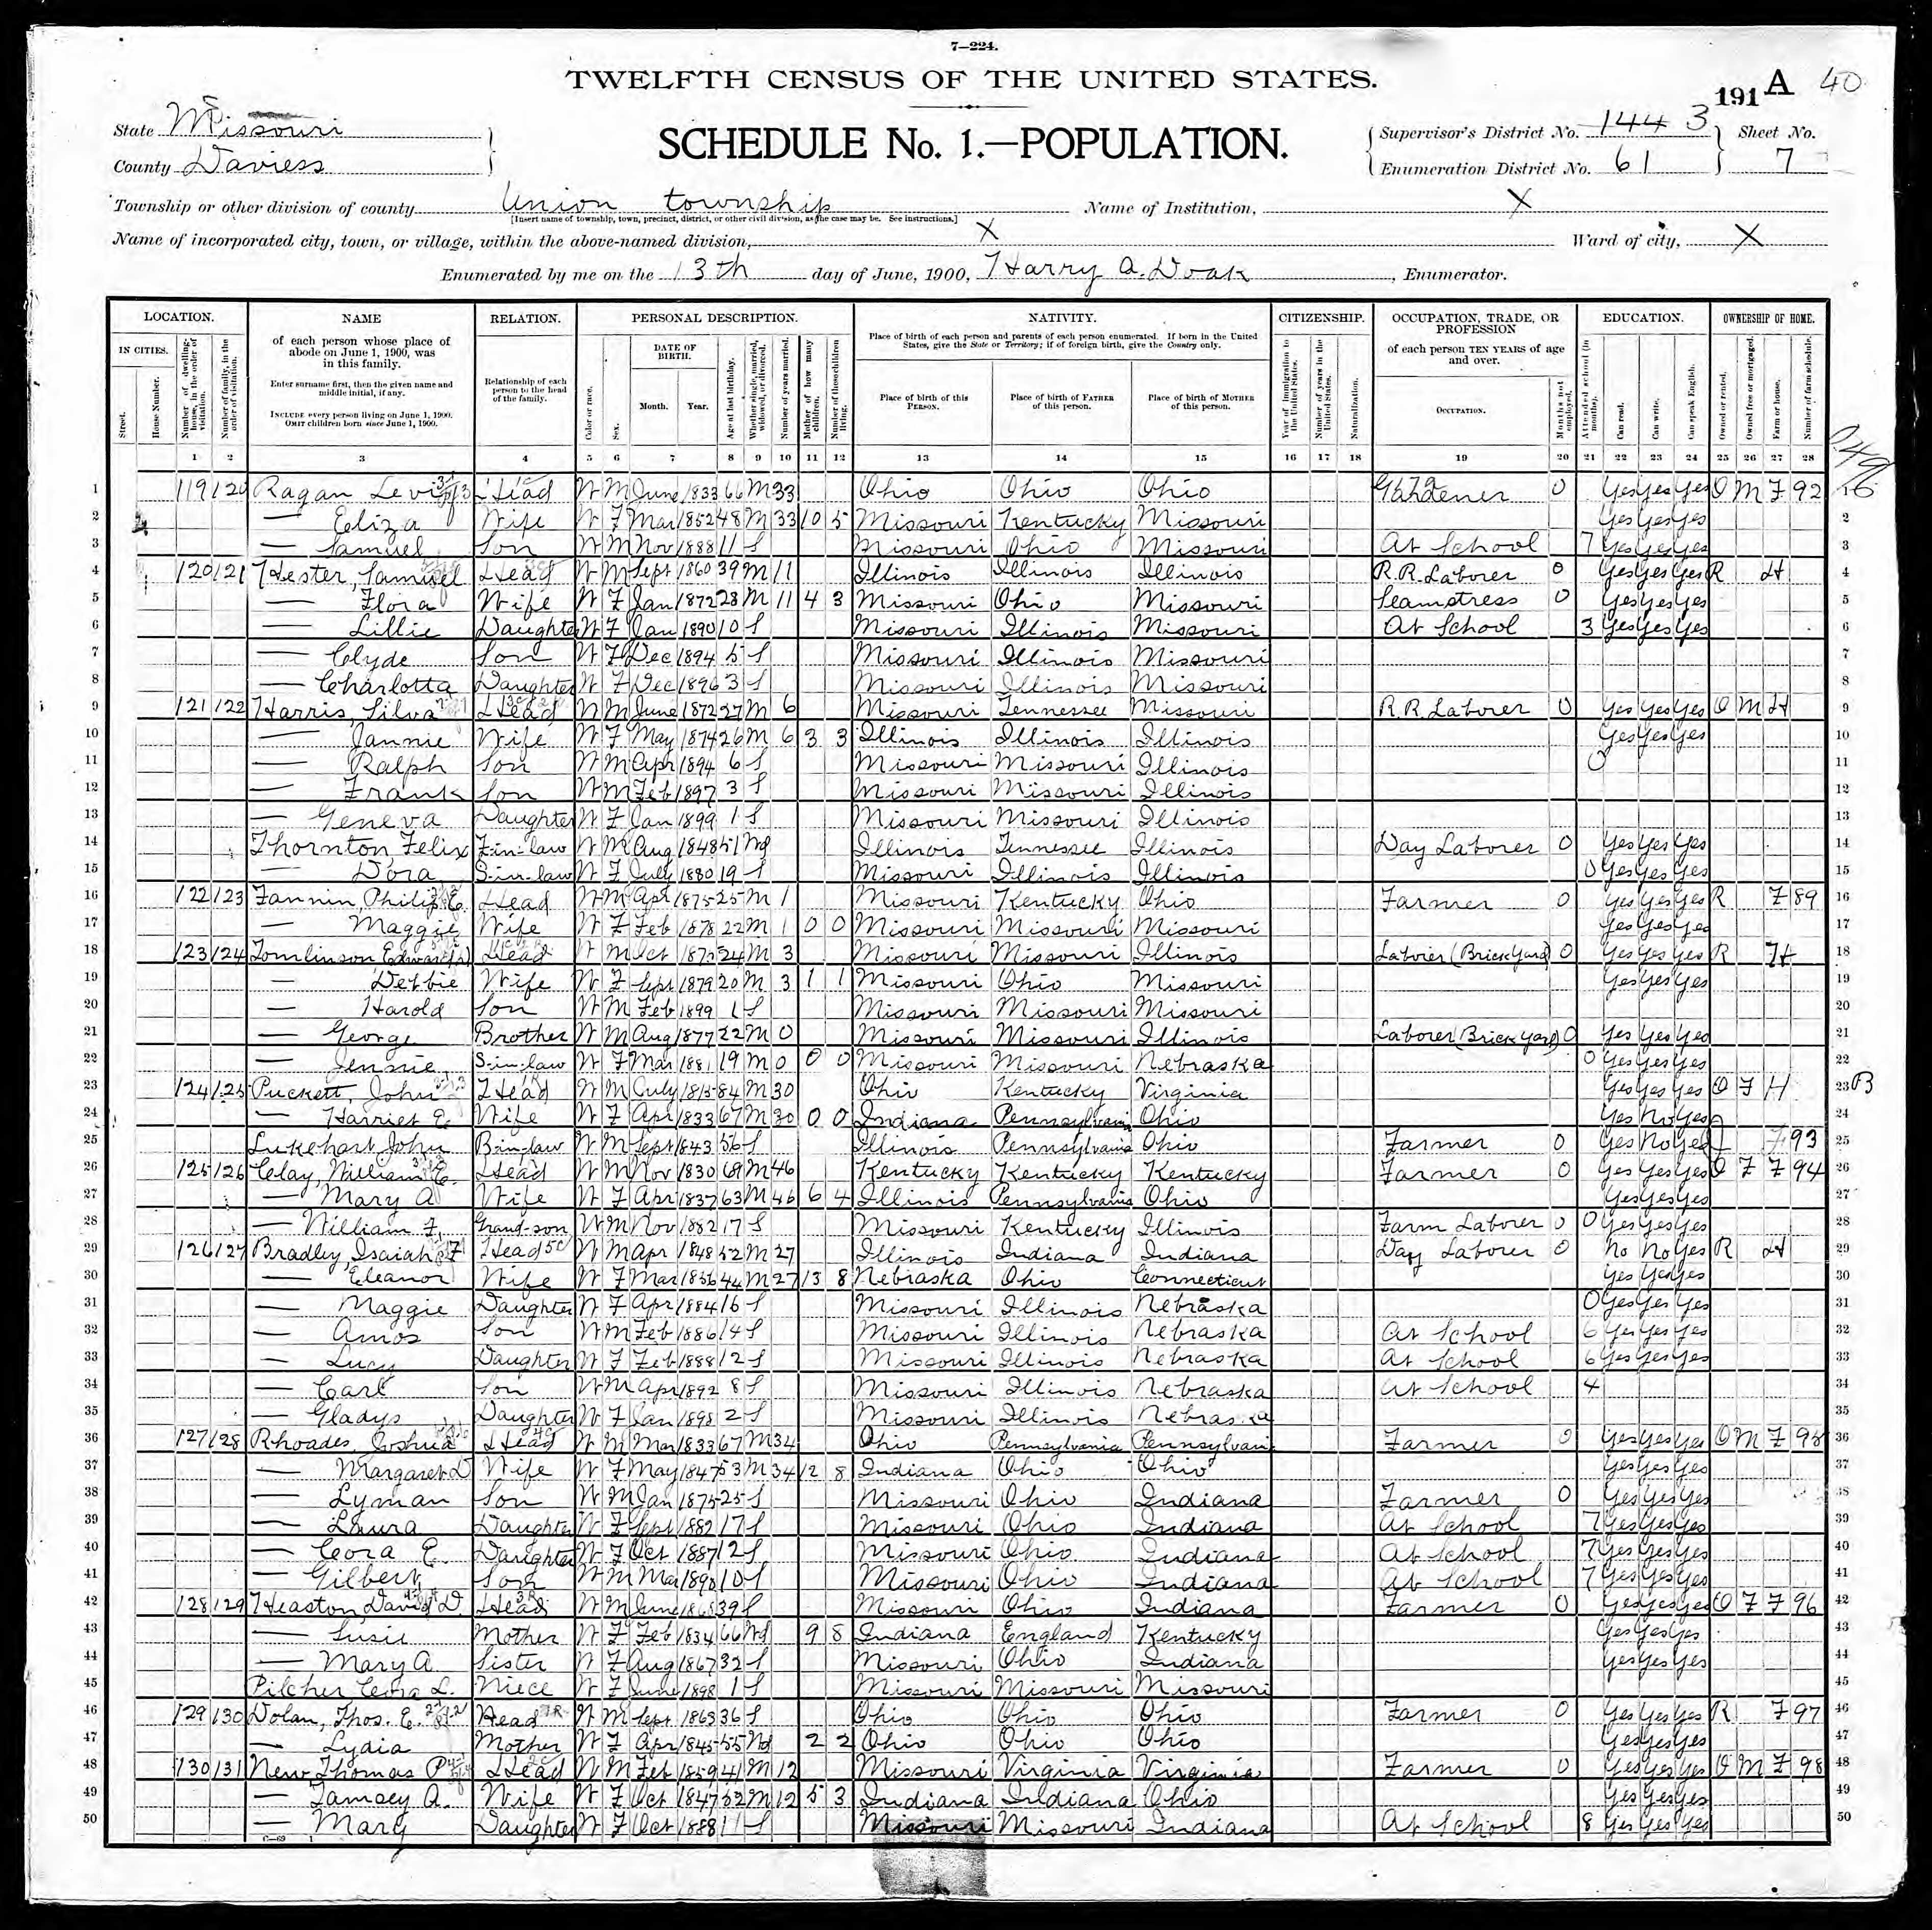 7—224.
TWELFTH CENSUS OF THE UNITED STATES.
191 A 40
State Missouri
County Daviess
SCHEDULE No. 1.—POPULATION.
Supervisor's District No. 144 3 Sheet No.
Enumeration District No. 61 7
Township or other division of county Union township Name of Institution, X
[Insert name of township, town, precinct, district, or other civil division, as the case may be. See instructions.]
Name of incorporated city, town, or village, within the above-named division, X Ward of city, X
Enumerated by me on the 13th day of June, 1900, Harry A. Doak, Enumerator.
LOCATION. NAME RELATION. PERSONAL DESCRIPTION. NATIVITY. CITIZENSHIP. OCCUPATION, TRADE, OR PROFESSION EDUCATION. OWNERSHIP OF HOME.
IN CITIES. Street. House Number. Number of dwelling-house, in the order of visitation. Number of family, in the order of visitation.
of each person whose place of abode on June 1, 1900, was in this family.
Enter surname first, then the given name and middle initial, if any.
INCLUDE every person living on June 1, 1900. OMIT children born since June 1, 1900.
Relationship of each person to the head of the family.
Color or race. Sex. DATE OF BIRTH. Month. Year. Age at last birthday. Whether single, married, widowed, or divorced. Number of years married. Mother of how many children. Number of these children living.
Place of birth of each person and parents of each person enumerated. If born in the United States, give the State or Territory; if of foreign birth, give the Country only.
Place of birth of this PERSON. Place of birth of FATHER of this person. Place of birth of MOTHER of this person.
Year of immigration to the United States. Number of years in the United States. Naturalization.
of each person TEN YEARS of age and over.
OCCUPATION. Months not employed.
Attended school (in months). Can read. Can write. Can speak English.
Owned or rented. Owned free or mortgaged. Farm or house. Number of farm schedule.
1 2 3 4 5 6 7 8 9 10 11 12 13 14 15 16 17 18 19 20 21 22 23 24 25 26 27 28
1 119 120 Ragan Levi Head W M June 1833 66 M 33 Ohio Ohio Ohio Gardener 0 Yes Yes Yes O M F 92 1
2 — Eliza Wife W F Mar 1852 48 M 33 10 5 Missouri Kentucky Missouri Yes Yes Yes 2
3 — Samuel Son W M Nov 1888 11 S Missouri Ohio Missouri At School 7 Yes Yes Yes 3
4 120 121 Hester, Samuel Head W M Sept 1860 39 M 11 Illinois Illinois Illinois R.R. Laborer 0 Yes Yes Yes R H 4
5 — Flora Wife W F Jan 1872 28 M 11 4 3 Missouri Ohio Missouri Seamstress 0 Yes Yes Yes 5
6 — Lillie Daughter W F Jan 1890 10 S Missouri Illinois Missouri At School 3 Yes Yes Yes 6
7 — Clyde Son W F Dec 1894 5 S Missouri Illinois Missouri 7
8 — Charlotta Daughter W F Dec 1896 3 S Missouri Illinois Missouri 8
9 121 122 Harris, Silva Head W M June 1872 27 M 6 Missouri Tennessee Missouri R.R. Laborer 0 Yes Yes Yes O M H 9
10 — Jannie Wife W F May 1874 26 M 6 3 3 Illinois Illinois Illinois Yes Yes Yes 10
11 — Ralph Son W M Apr 1894 6 S Missouri Missouri Illinois 0 11
12 — Frank Son W M Feb 1897 3 S Missouri Missouri Illinois 12
13 — Geneva Daughter W F Jan 1899 1 S Missouri Missouri Illinois 13
14 Thornton, Felix F-in-law W M Aug 1848 51 Wd Illinois Tennessee Illinois Day Laborer 0 Yes Yes Yes 14
15 — Dora S-in-law W F July 1880 19 S Missouri Illinois Illinois 0 Yes Yes Yes 15
16 122 123 Fannin, Philip E. Head W M Apr 1875 25 M 1 Missouri Kentucky Ohio Farmer 0 Yes Yes Yes R F 89 16
17 — Maggie Wife W F Feb 1878 22 M 1 0 0 Missouri Missouri Missouri Yes Yes Yes 17
18 123 124 Tomlinson Edward Head W M Oct 1875 24 M 3 Missouri Missouri Illinois Laborer (Brick Yard) 0 Yes Yes Yes R H 18
19 — Debbie Wife W F Sept 1879 20 M 3 1 1 Missouri Ohio Missouri Yes Yes Yes 19
20 — Harold Son W M Feb 1899 1 S Missouri Missouri Missouri 20
21 — George Brother W M Aug 1877 22 M 0 Missouri Missouri Illinois Laborer (Brick Yard) 0 Yes Yes Yes 21
22 — Jennie S-in-law W F Mar 1881 19 M 0 0 0 Missouri Missouri Nebraska 0 Yes Yes Yes 22
23 124 125 Puckett, John Head W M July 1815 84 M 30 Ohio Kentucky Virginia Yes Yes Yes O F H 23 B
24 — Harriet E. Wife W F Apr 1833 67 M 30 0 0 Indiana Pennsylvania Ohio Yes No Yes 24
25 Lukehart John B-in-law W M Sept 1843 56 S Illinois Pennsylvania Ohio Farmer 0 Yes No Yes F 93 25
26 125 126 Clay, William C. Head W M Nov 1830 69 M 46 Kentucky Kentucky Kentucky Farmer 0 Yes Yes Yes O F F 94 26
27 — Mary A Wife W F Apr 1837 63 M 46 6 4 Illinois Pennsylvania Ohio Yes Yes Yes 27
28 — William F. Grand-son W M Nov 1882 17 S Missouri Kentucky Illinois Farm Laborer 0 0 Yes Yes Yes 28
29 126 127 Bradley, Isaiah F Head W M Apr 1848 52 M 27 Illinois Indiana Indiana Day Laborer 0 No No Yes R H 29
30 — Eleanor Wife W F Mar 1856 44 M 27 13 8 Nebraska Ohio Connecticut Yes Yes Yes 30
31 — Maggie Daughter W F Apr 1884 16 S Missouri Illinois Nebraska 0 Yes Yes Yes 31
32 — Amos Son W M Feb 1886 14 S Missouri Illinois Nebraska At School 6 Yes Yes Yes 32
33 — Lucy Daughter W F Feb 1888 12 S Missouri Illinois Nebraska At School 6 Yes Yes Yes 33
34 — Carl Son W M Apr 1892 8 S Missouri Illinois Nebraska At School 4 34
35 — Gladys Daughter W F Jan 1898 2 S Missouri Illinois Nebraska 35
36 127 128 Rhoades, Joshua Head W M Mar 1833 67 M 34 Ohio Pennsylvania Pennsylvania Farmer 0 Yes Yes Yes O M F 95 36
37 — Margaret D Wife W F May 1847 53 M 34 12 8 Indiana Ohio Ohio Yes Yes Yes 37
38 — Lyman Son W M Jan 1875 25 S Missouri Ohio Indiana Farmer 0 Yes Yes Yes 38
39 — Laura Daughter W F Sept 1882 17 S Missouri Ohio Indiana At School 7 Yes Yes Yes 39
40 — Cora E. Daughter W F Oct 1887 12 S Missouri Ohio Indiana At School 7 Yes Yes Yes 40
41 — Gilbert Son W M Mar 1890 10 S Missouri Ohio Indiana At School 7 Yes Yes Yes 41
42 128 129 Heaston, David D. Head W M June 1860 39 S Missouri Ohio Indiana Farmer 0 Yes Yes Yes O F F 96 42
43 — Susie Mother W F Feb 1834 66 Wd 9 8 Indiana England Kentucky Yes Yes Yes 43
44 — Mary A. Sister W F Aug 1867 32 S Missouri Ohio Indiana Yes Yes Yes 44
45 Pilcher Cora L. Niece W F June 1898 1 S Missouri Missouri Missouri 45
46 129 130 Dolan, Thos. E. Head W M Sept 1863 36 S Ohio Ohio Ohio Farmer 0 Yes Yes Yes R F 97 46
47 — Lydia Mother W F Apr 1845 55 Wd 2 2 Ohio Ohio Ohio Yes Yes Yes 47
48 130 131 New, Thomas P Head W M Feb 1859 41 M 12 Missouri Virginia Virginia Farmer 0 Yes Yes Yes O M F 98 48
49 — Tamsey A. Wife W F Oct 1847 52 M 12 5 3 Indiana Indiana Ohio Yes Yes Yes 49
50 — Mary Daughter W F Oct 1888 11 S Missouri Missouri Indiana At School 8 Yes Yes Yes 50